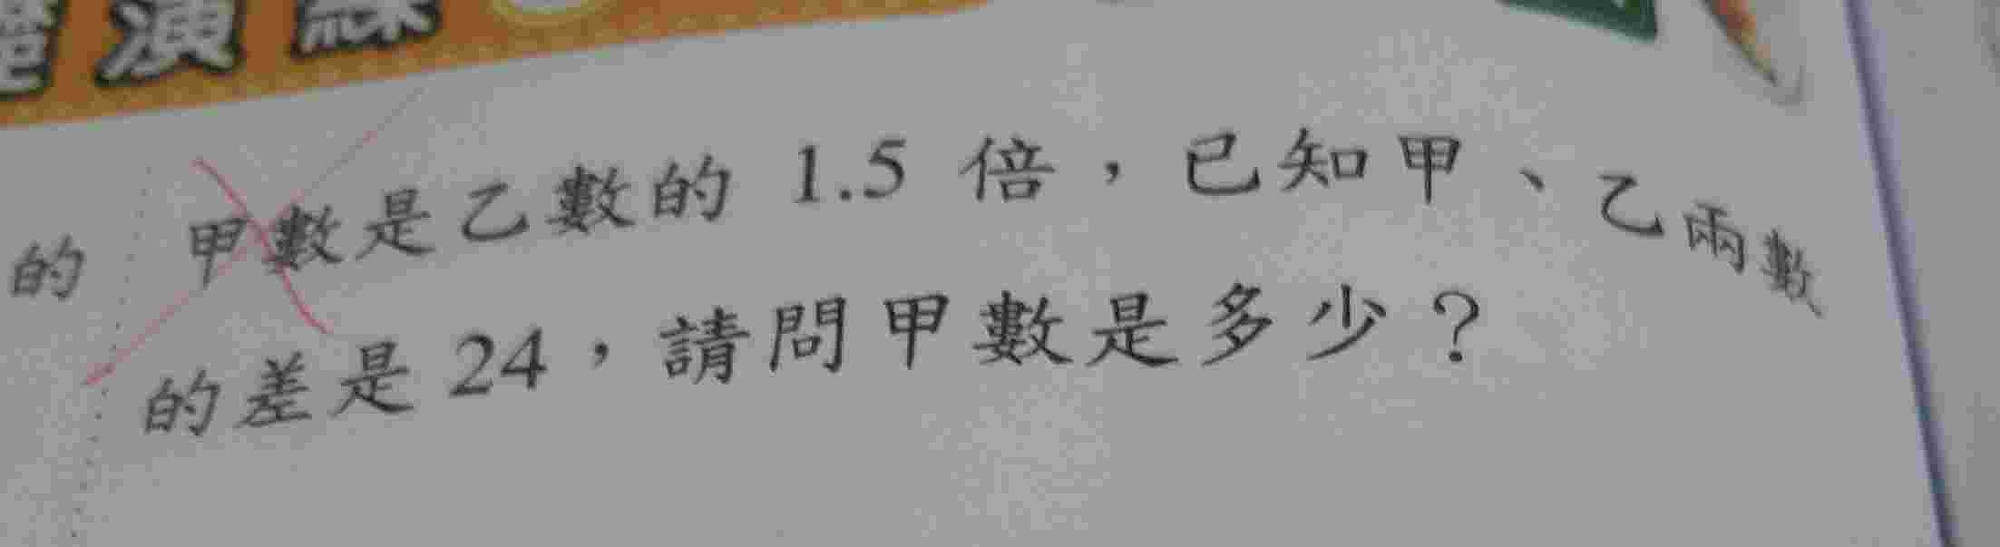 演練
的
甲數是乙數的 1.5 倍，已知甲、乙兩數
的差是 24，請問甲數是多少？